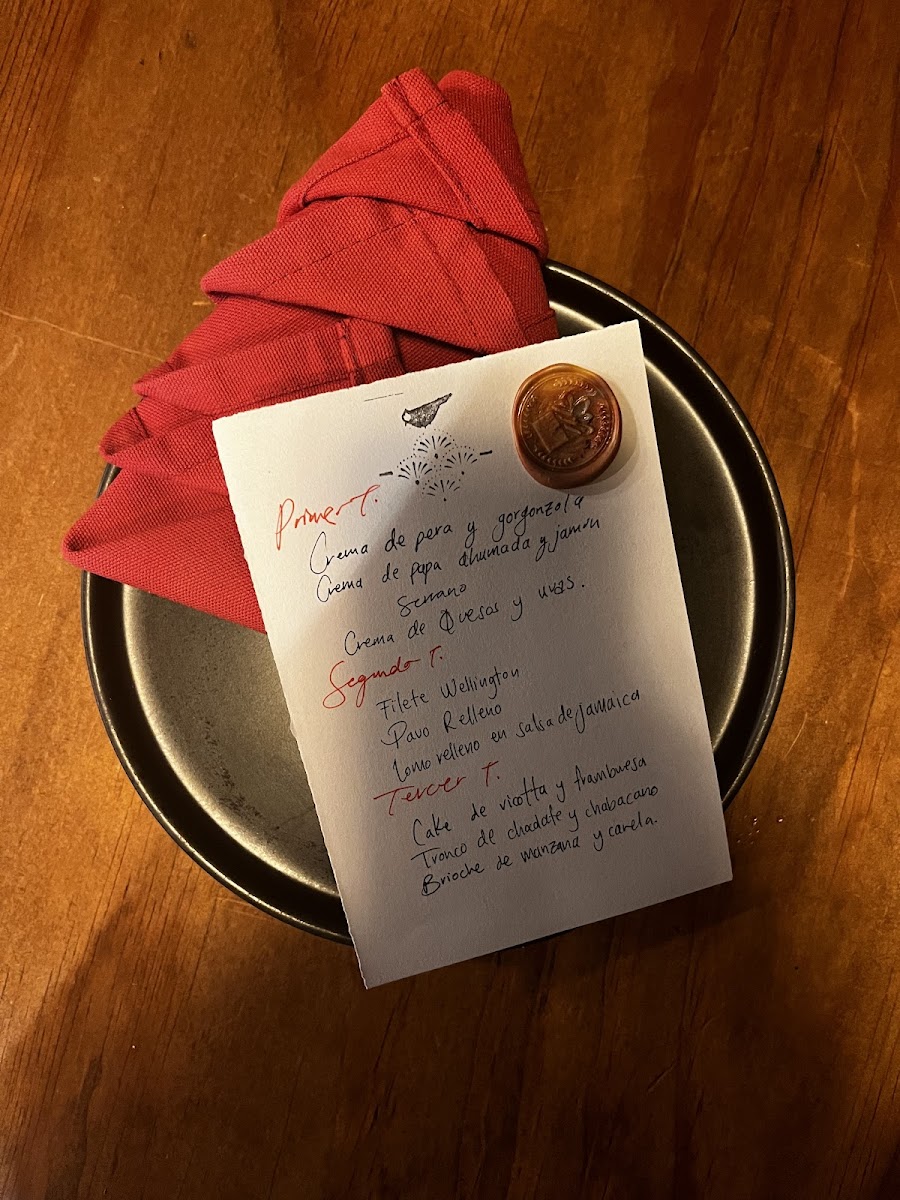 Primer T.
Crema de pera y gorgonzola
Crema de papa ahumada y jamón
Serrano
Crema de Quesos y uvas.
Segundo T.
Filete Wellington
Pavo Relleno
Lomo relleno en salsa de jamaica
Tercer T.
Cake de ricotta y frambuesa
Tronco de chocolate y chabacano
Brioche de manzana y canela.